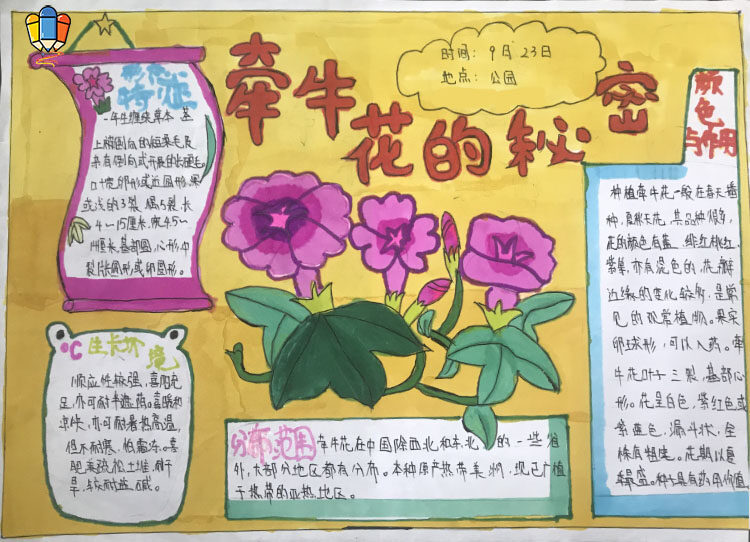 牵牛花的秘密
时间：9月23日
地点：公园
形态特征
一年生缠绕草本 茎
上被倒向的短柔毛及
杂有倒向或开展的长硬毛。
叶宽卵形或近圆形，深
或浅的3裂，偶5裂，长
4～15厘米，宽4.5～
14厘米，基部圆，心形，中
裂片长圆形或卵圆形。
℃生长环境
顺应性较强，喜阳光
足，亦可耐半遮荫。喜暖和
凉快，亦可耐暑热高温，
但不耐寒，怕霜冻。喜
肥美疏松土堆，耐
旱，较耐盐碱。
分布范围
牵牛花在中国除西北和东北的一些省
外，大部分地区都有分布。本种原产热带美州，现已广植
于热带的亚热地区。
颜色与作用
种植牵牛花一般在春天播
种，夏秋天花，其品种很多，
花的颜色有蓝、绯红、桃红、
紫等，亦有混色的，花瓣
边缘的变化较多，是常
见的观赏植物。果实
卵球形，可以入药。牵
牛花叶子三裂，基部心
形。花呈白色，紫红色或
紫蓝色，漏斗状，全
株有粗毛。花期以夏
季最盛。种子具有药用价值